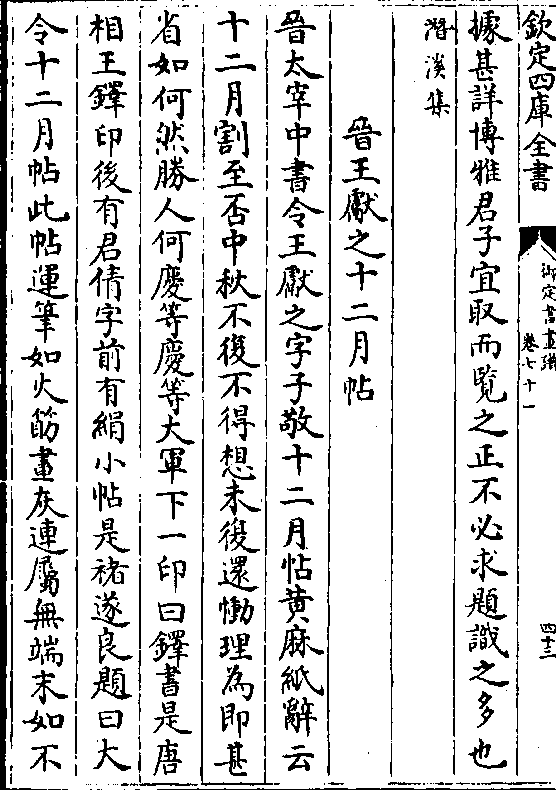 欽定四庫全書
御定書畫譜
卷七十一
四十三
據甚詳博雅君子宜取而覽之正不必求題識之多也
潛溪集
晉王獻之十二月帖
晉太宰中書令王獻之字子敬十二月帖黄麻紙辭云
十二月割至否中秋不復不得想未復還慟理為即甚
省如何然勝人何慶等慶等大軍下一印曰鐸書是唐
相王鐸印後有君倩字前有絹小帖是褚遂良題曰大
令十二月帖此帖運筆如火筯畫灰連屬無端末如不